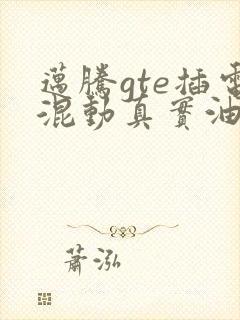 邁騰gte插電
混動真實油
蕭泓